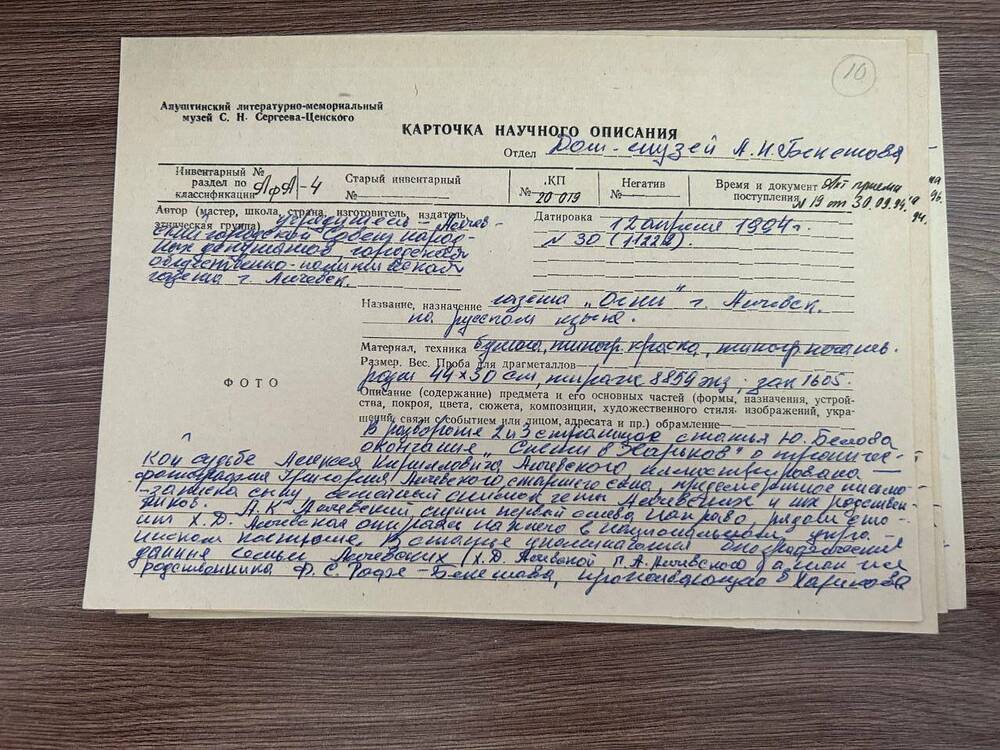 10
Алуштинский литературно-мемориальный
музей С. Н. Сергеева-Ценского
КАРТОЧКА НАУЧНОГО ОПИСАНИЯ
Отдел Дом-музей А.Н. Бекетова
Инвентарный №
раздел по
классификации АфА-4
Старый инвентарный
№
КП
№ 20-019
Негатив
№
Время и документ Акт приема
поступления № 19 от 30.09.94.
Автор (мастер, школа, страна, изготовитель, издатель,
этническая группа) учредитель - Алчев-
ский городской Совет народ-
ных депутатов, городская
общественно-политическая
газета г. Алчевск.
Датировка 12 апреля 1994 г.
№ 30 (11222).
Название, назначение газета "Огни" г. Алчевск.
на русском языке.
Материал, техника бумага, типогр. краска, типогр. печать.
Размер. Вес. Проба для драгметаллов
44 х 30 см, тираж 8859 экз; зак 1605.
ФОТО
Описание (содержание) предмета и его основных частей (формы, назначения, устрой-
ства, покроя, цвета, сюжета, композиции, художественного стиля изображений, укра-
шений, связи с событием или лицом, адресата и пр.) обрамление
В развороте 2 и 3 страницах статья Ю. Белова
окончание "Снега в Харьков" о трагичес-
кой судьбе Алексея Кирилловича Алчевского иллюстрирована
фотографией Григория Алчевского старшего сына, предсмертное письмо
-записка сыну семейный снимок четы Алчевских и их родствен-
ников. А.К. Алчевский сидит первый слева направо, рядом сто-
ит Х.Д. Алчевская в национальном укра-
инском костюме. В статье упоминаются биографические
данные семьи Алчевских (Х.Д. Алчевской, Г.А. Алчевского) а так же
родственника Ф.С. Бекетова, проживающего в Харькове